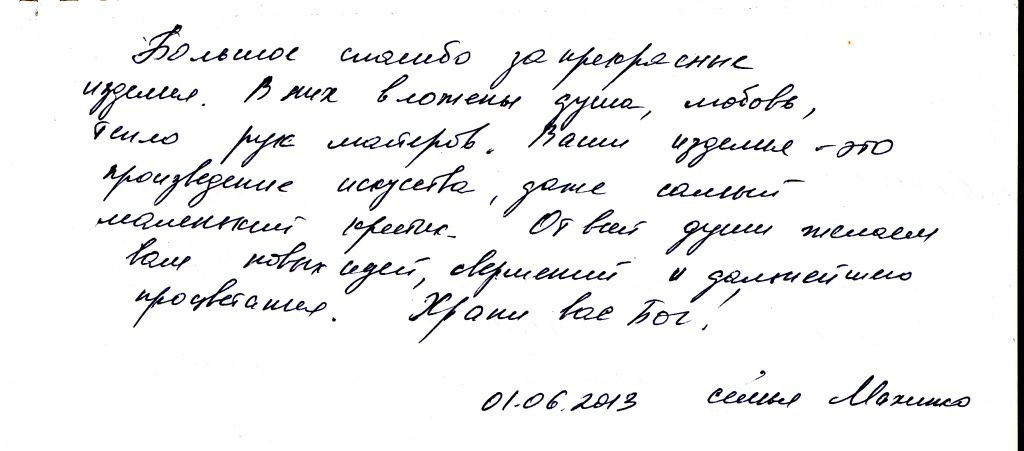 Большое спасибо за прекрасные
изделия. В них вложены душа, любовь,
тепло рук мастеров. Ваши изделия - это
произведение искусства, даже самый
маленький крестик. От всей души желаем
вам новых идей, свершений и дальнейшего
процветания. Храни вас Бог!
01.06.2013 семья